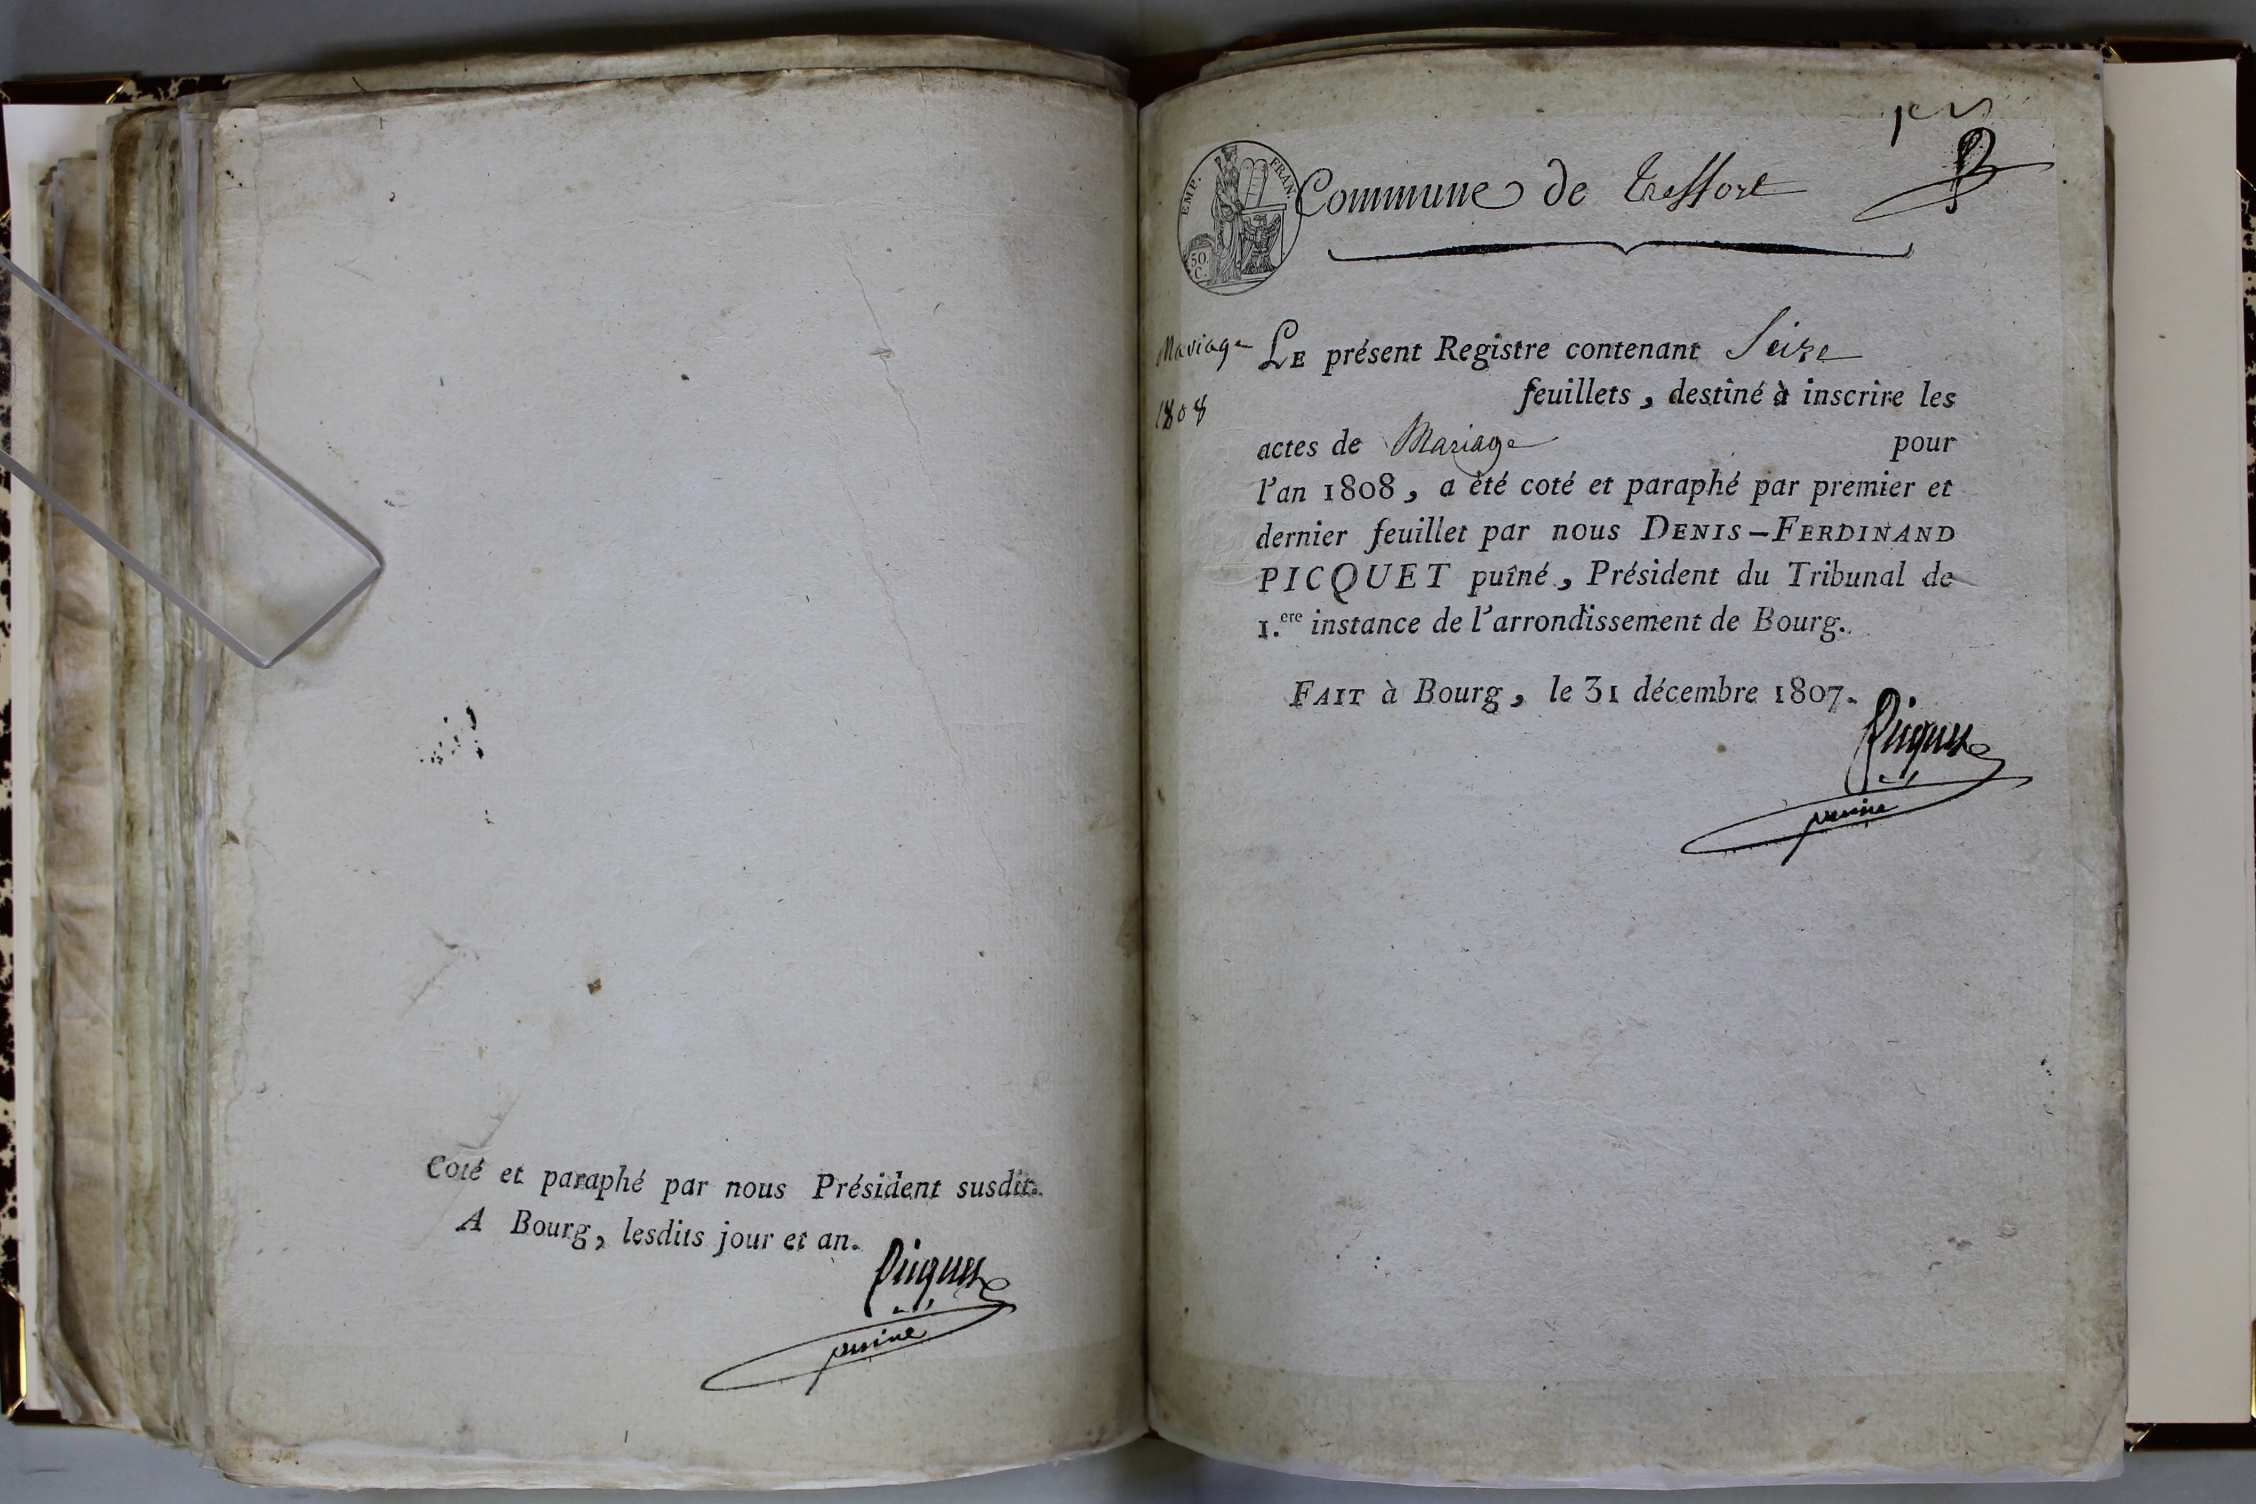 Coté et paraphé par nous Président susdit.
A Bourg, lesdits jour et an.
Picquet
puiné
EMP. FRAN.
50.
C.
Commune de Treffort
Mariage
1808
LE présent Registre contenant Seize
feuillets, destiné à inscrire les
actes de Mariage pour
l'an 1808, a été coté et paraphé par premier et
dernier feuillet par nous DENIS-FERDINAND
PICQUET puîné, Président du Tribunal de
1.ere instance de l'arrondissement de Bourg.
FAIT à Bourg, le 31 décembre 1807.
Picquet
puiné